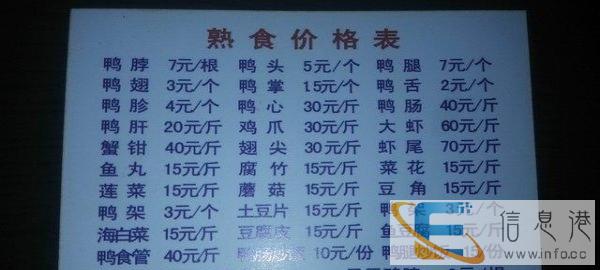 熟食价格表
鸭脖 7元/根 鸭头 5元/个 鸭腿 7元/个
鸭翅 3元/个 鸭掌 1.5元/个 鸭舌 2元/个
鸭胗 4元/个 鸭心 30元/斤 鸭肠 40元/斤
鸭肝 20元/斤 鸡爪 30元/斤 大虾 60元/斤
蟹钳 40元/斤 翅尖 30元/斤 虾尾 70元/斤
鱼丸 15元/斤 腐竹 15元/斤 菜花 15元/斤
莲菜 15元/斤 蘑菇 15元/斤 豆角 15元/斤
鸭架 3元/个 土豆片 15元/斤 鸭架 3元/个
海白菜 15元/斤 豆腐皮 15元/斤 鱼豆腐 15元/斤
鸭食管 40元/斤 10元/份 鸭腿炒饭 15元/份
信息港
www.infoo.cc